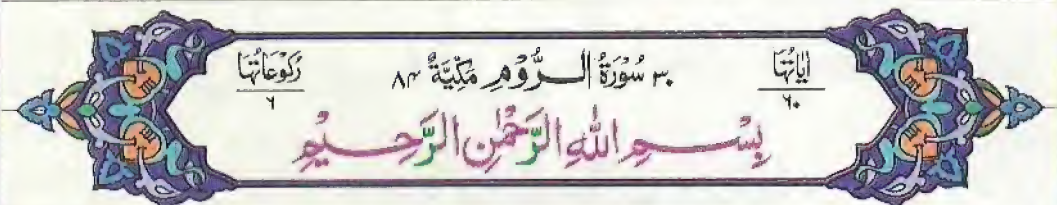 اٰيَاتُهَا ٦٠ ٣٠ سُوْرَةُ الرُّوْمِ مَكِّيَّةٌ ٨٤ رُكُوْعَاتُهَا ٦
بِسْمِ اللّٰهِ الرَّحْمٰنِ الرَّحِيْمِ